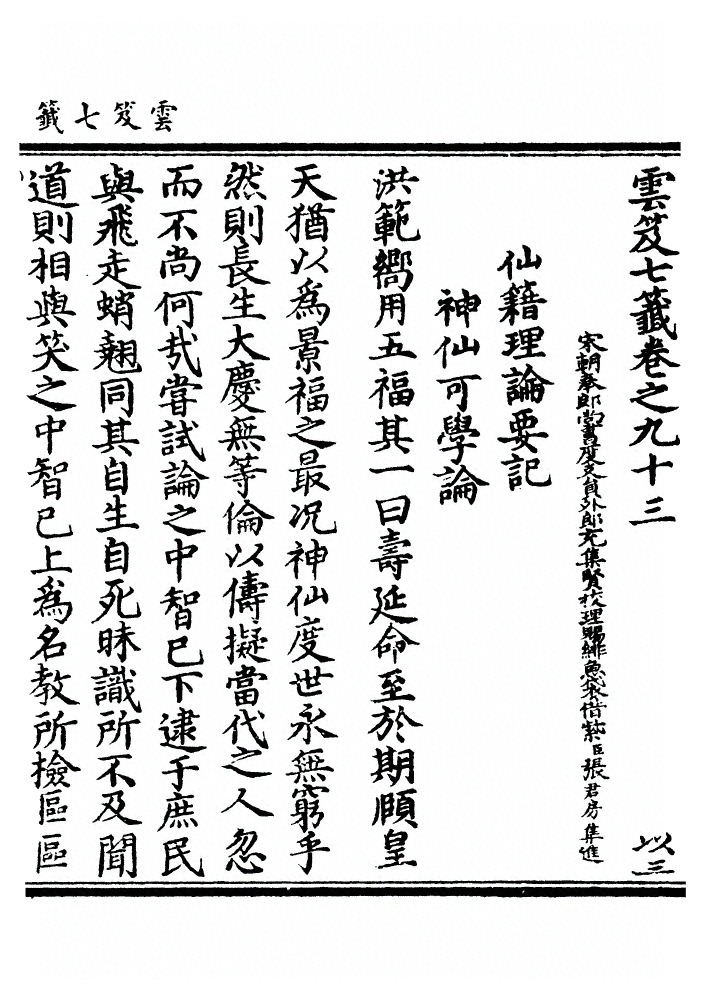 雲笈七籤
雲笈七籤卷之九十三
以三
宋朝奉郎尚書度支員外郎充集賢校理賜緋魚袋借紫臣張君房集進
仙籍理論要記
神仙可學論
洪範嚮用五福其一曰壽延命至於期頤皇
天猶以爲景福之最况神仙度世永無窮乎
然則長生大慶無等倫以儔擬當代之人忽
而不尚何㢤嘗試論之中智已下逮于庶民
與飛走蛸翹同其自生自死昧識所不及聞
道則相與笑之中智已上爲名教所檢區區